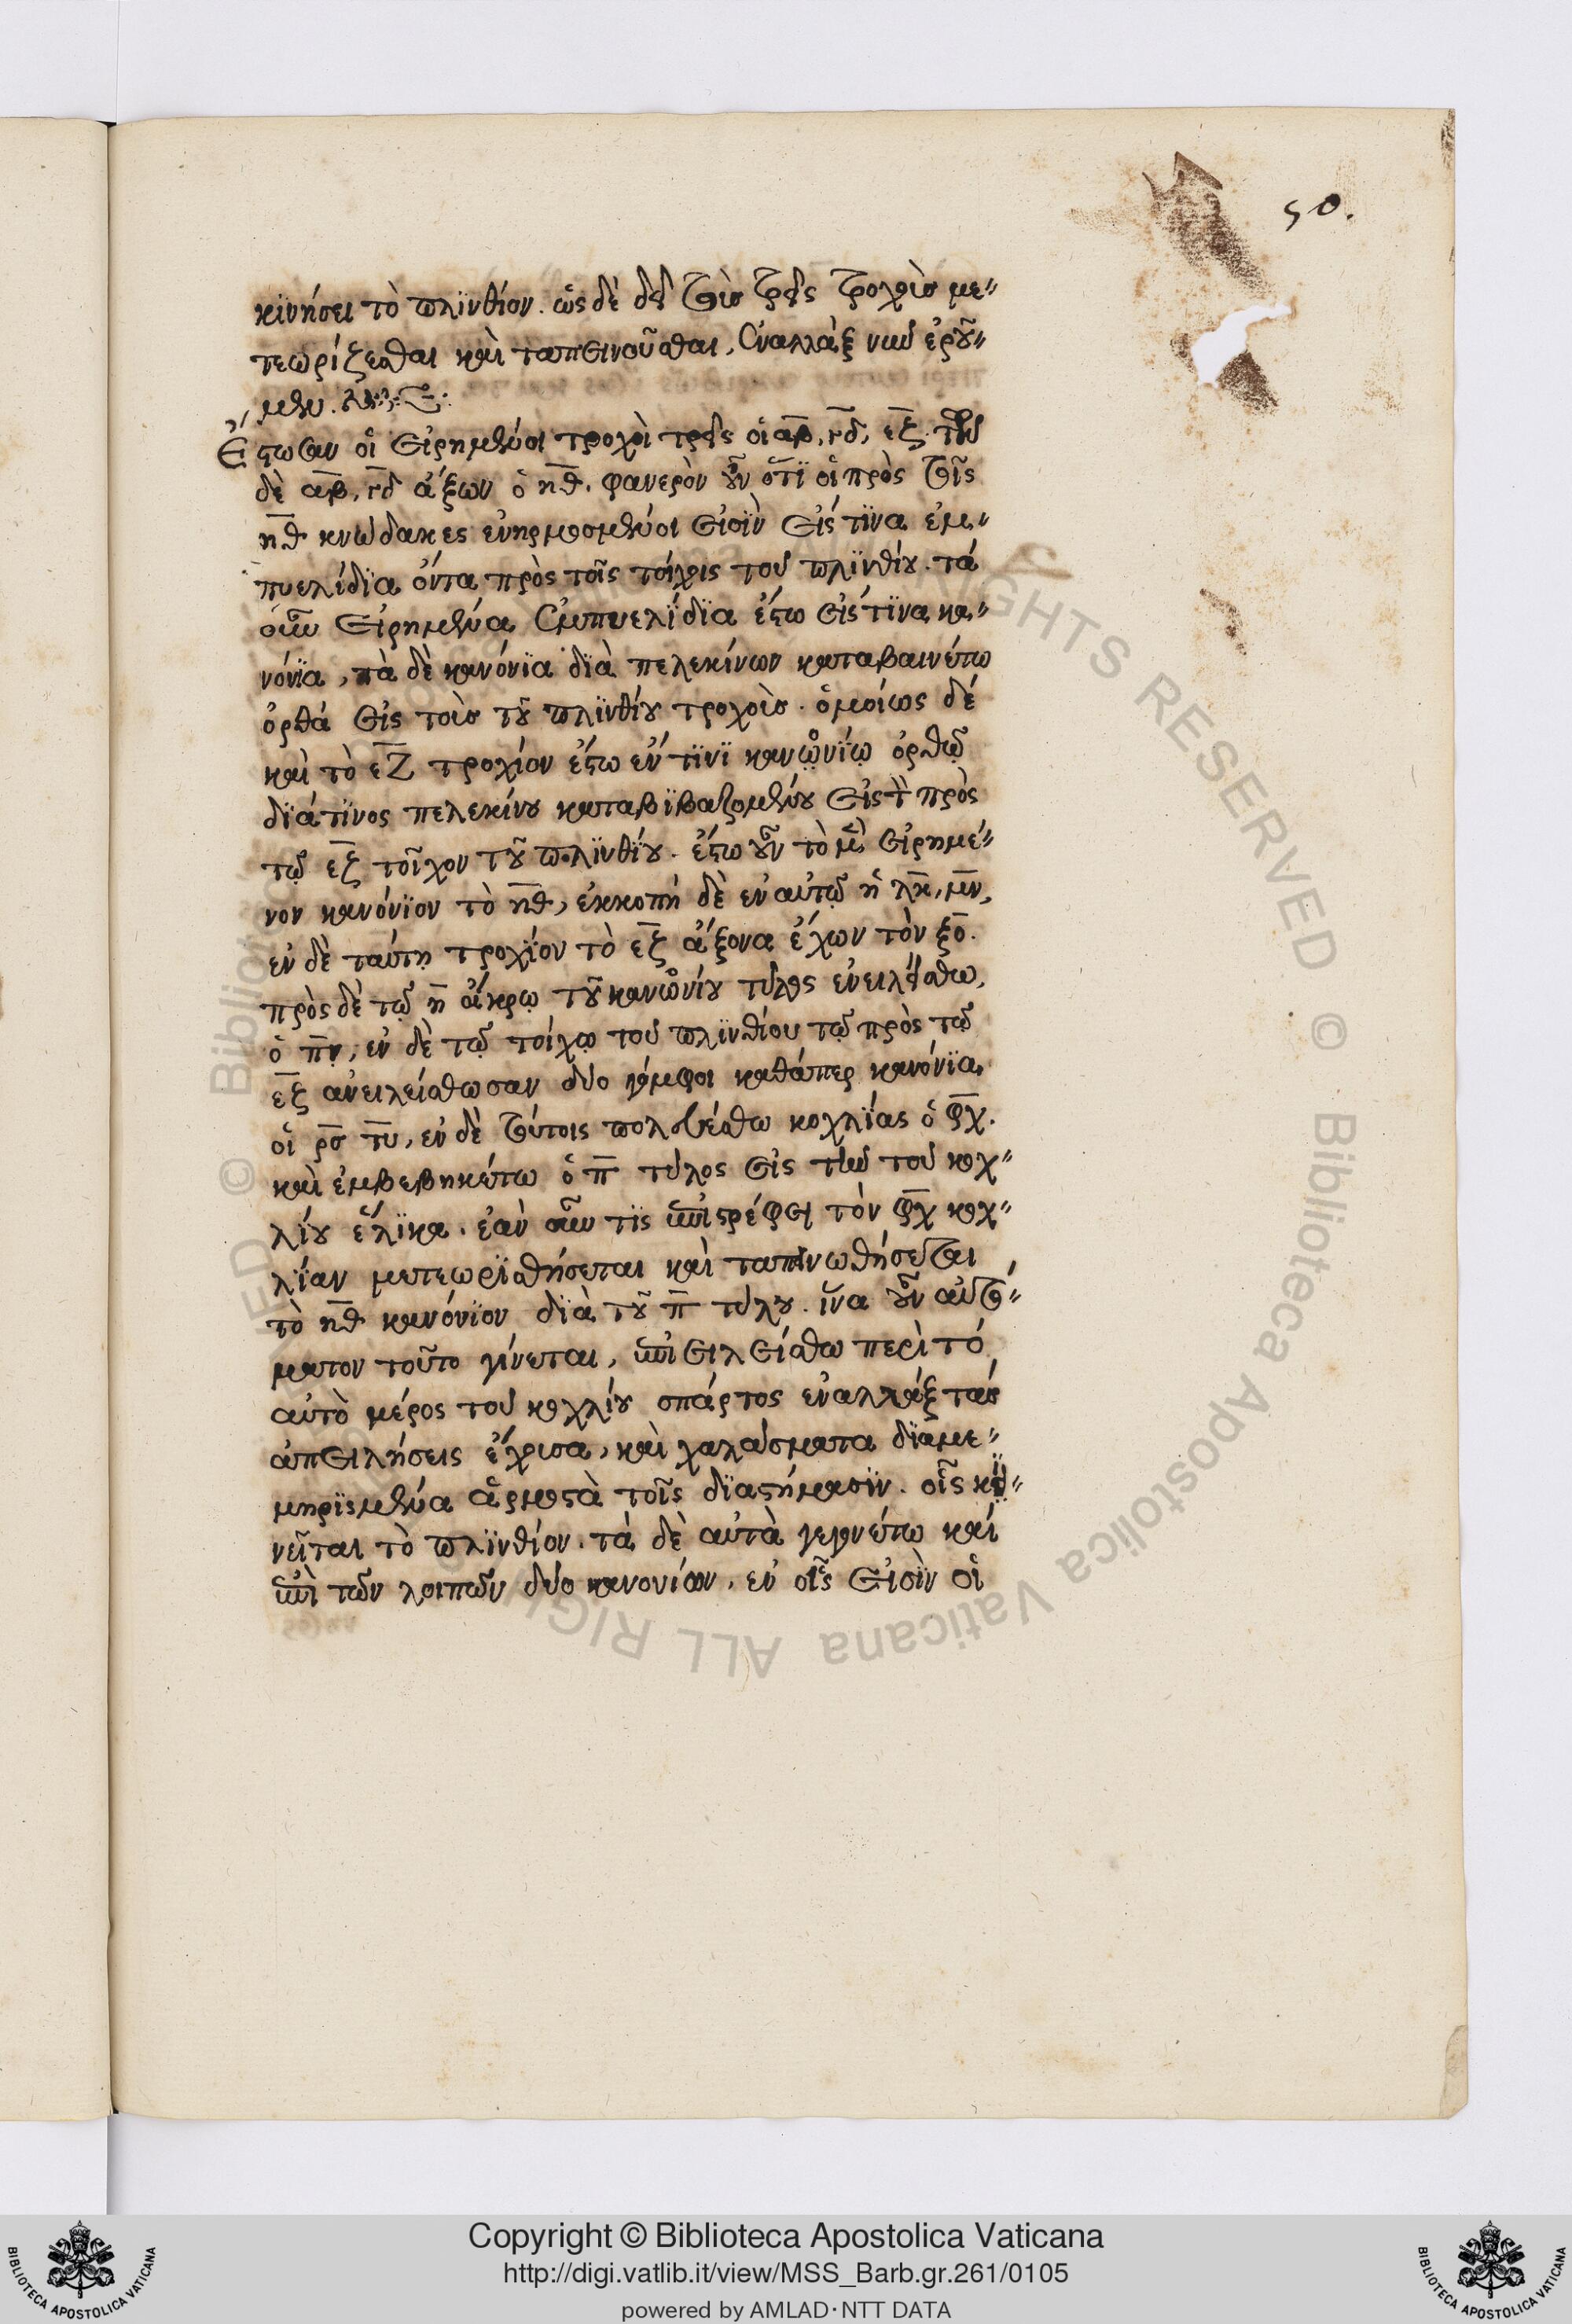 50.
κϊνήσει τὸ πλϊνθίον. ὡς δὲ δεῖ τοὺς τρεῖς τροχοὺς με〃
τεωρίζεσθαι καὶ ταπεινοῦσθαι, ἐναλλὰξ νῦν ἐροῦ〃
μεν.
Ἔστωσαν οἱ εἰρημένοι τροχοὶ τρεῖς οἱ αβ, γδ, εζ. τῶν
δὲ αβ, γδ ἄξων ὁ ηθ. φανερὸν οὖν ὅτϊ οἱ πρὸς τοῖς
ηθ κνώδακες ἐνηρμοσμένοι εἰσϊν εἰς τϊνα ἐμ〃
πυελίδϊα ὄντα πρὸς τοῖς τοίχοις τοῦ πλϊνθίου. τά
οὖν εἰρημένα ἐμπυελϊδϊα ἔστω εἰς τϊνα κα〃
νόνϊα, τὰ δὲ κανόνϊα δϊὰ πελεκίνων καταβαινέτω
ὀρθά εἰς τοὺς τοῦ πλϊνθίου τροχοὺς. ὁμοίως δέ
καὶ τὸ εΖ τροχίον ἔστω ἐν τϊνϊ κανωνϊῳ ὀρθῷ
δϊάτϊνος πελεκίνου καταβϊβαζομένου εἰς τὸν πρὸς
τῷ εζ τοῖχον τοῦ πλϊνθίου. ἔστω οὖν τὸ μὲν εἰρημέ〃
νον κανόνϊον τὸ ηθ, ἐκκοπή δὲ ἐν αὐτῷ ἡ λκ, μν,
ἐν δὲ ταύτῃ τροχϊον τὸ εζ ἄξονα ἔχων τὸν ξο.
πρὸς δὲ τῷ η ἄκρῳ τοῦ κανωνίου τύλος ἐνειλήσθω,
ὁ πν, ἐν δὲ τῷ τοίχῳ τοῦ πλϊνθίου τῷ πρὸς τῷ
εζ ἀνειλείσθωσαν δύο γόμφοι καθάπερ κανόνϊα,
οἱ ρσ τυ, ἐν δὲ τούτοις πολευέσθω κοχλϊας ὁ φχ.
καὶ ἐμβεβηκέτω ὁ π τύλος εἰς τὴν τοῦ κοχ〃
λίου ἕλϊκα. ἐὰν οὖν τϊς ἐπιστρέφει τὸν φχ κοχ〃
λϊαν μετεωρϊσθήσεται καὶ ταπεινωθήσεται
τὸ ηθ κανόνϊον δϊὰ τοῦ π τύλου. ἵνα οὖν αὐτό〃
ματον τοῦτο γίνεται, ἐπιειλείσθω περὶ τό
αὐτὸ μέρος τοῦ κοχλίου σπάρτος ἐναλλὰξ τὰς
ἀπειλήσεις ἔχουσα, καὶ χαλάσματα δϊαμε〃
μηρϊσμένα ἁρμοστὰ τοῖς δϊαστήμασϊν. οἷς κϊ〃
νεῖται τὸ πλϊνθίον. τά δὲ αὐτὰ γεγονέτω καί
ἐπὶ τῶν λοιπῶν δύο κανονίων, ἐν οἷς εἰσϊν οἱ
Copyright © Biblioteca Apostolica Vaticana
http://digi.vatlib.it/view/MSS_Barb.gr.261/0105
powered by AMLAD·NTT DATA
BIBLIOTECA APOSTOLICA VATICANA
BIBLIOTECA APOSTOLICA VATICANA
© Biblioteca Apostolica Vaticana ALL RIGHTS RESERVED